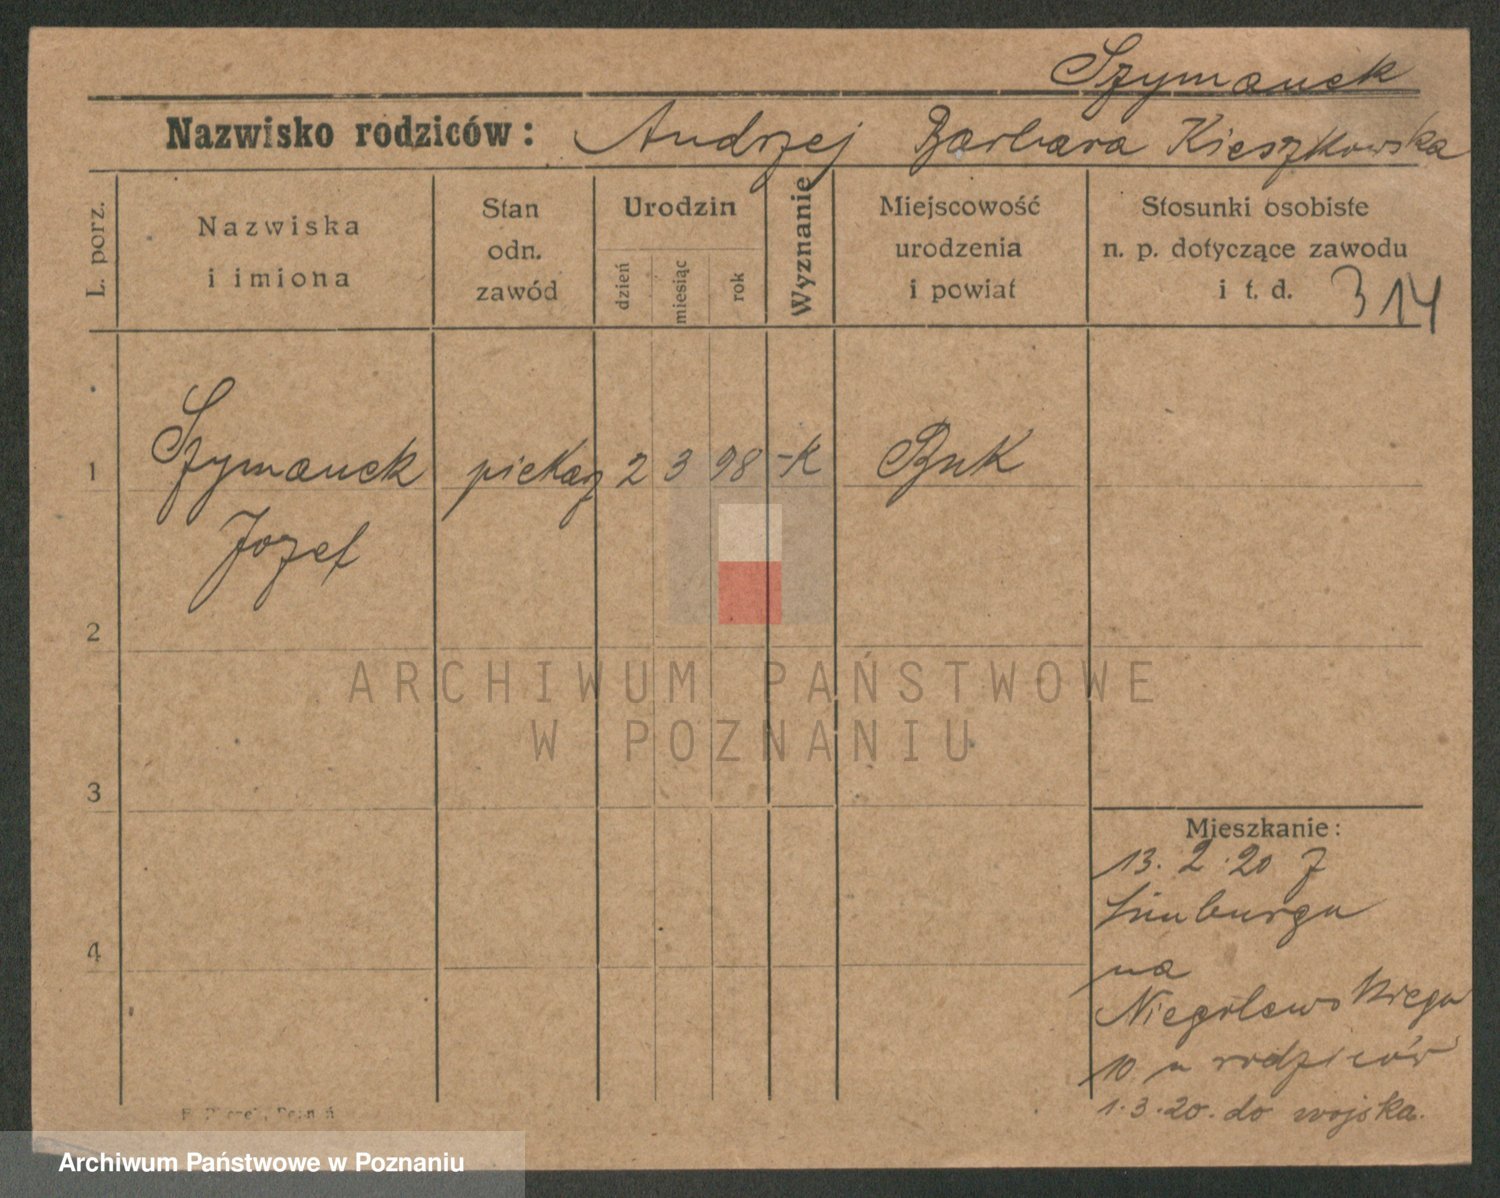 Szymanek
Nazwisko rodziców: Andrzej Barbara Kieszkowska
L. porz.
Nazwiska
i imiona
Stan
odn.
zawód
Urodzin
dzień
miesiąc
rok
Wyznanie
Miejscowość
urodzenia
i powiat
Stosunki osobiste
n. p. dotyczące zawodu
i t. d. 314
1 Szymanek piekarz 2 3 98 -k Buk
Jozef
2
ARCHIWUM PAŃSTWOWE
W POZNANIU
3
Mieszkanie:
13.2.20 z
Limburga
na
4
Niegolewskiego
10 u rodziców
1.3.20. do wojska.
Archiwum Państwowe w Poznaniu